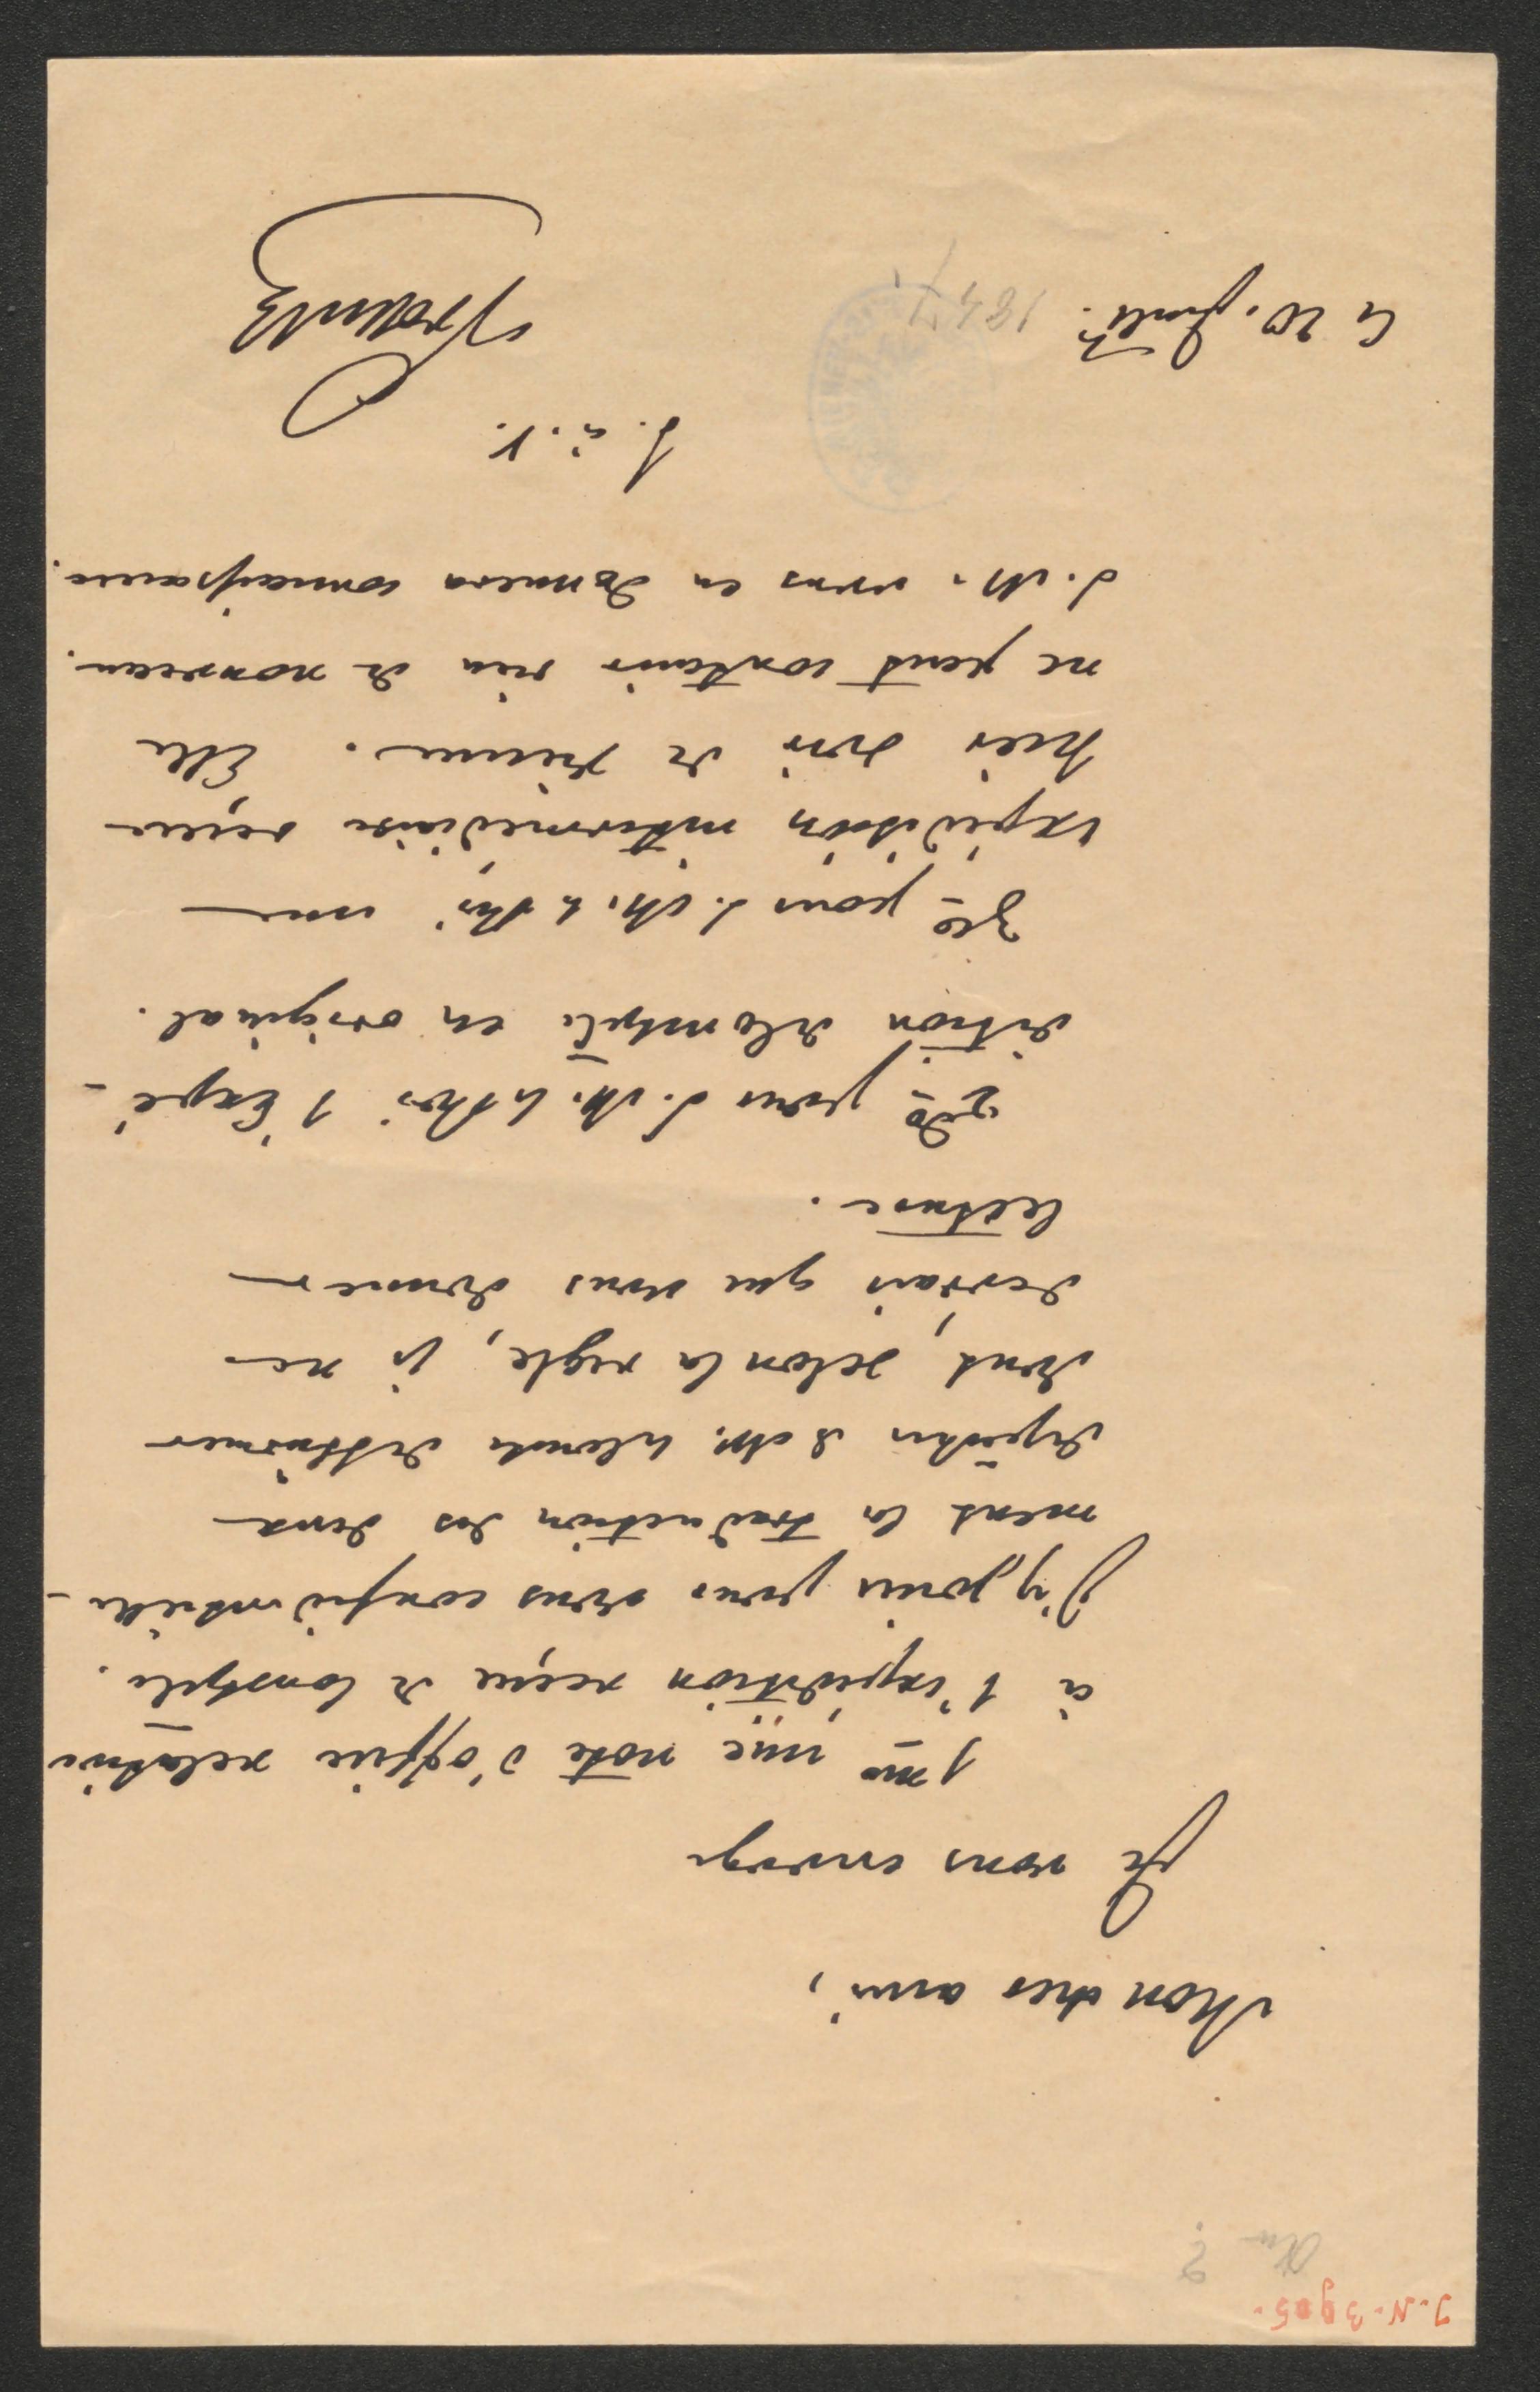 J. N. 3905.
An ?
Mon cher ami,
Je vous envoye
1mo une note d'office relative
à l'expédition reçue de Constple.
J'y joins pour vous confidentielle-
ment la traduction des deux
dépêches de Mr. le Comte
dont, selon la regle, je ne
devrais que vous donner
lecture.
2do pour S. M. le Roi l'Expé-
dition de Constple en original.
3tio pour S. M. le Roi une
expédition intermédiaire reçue
hier soir de Vienne. Elle
ne peut contenir rien de nouveau.
S. M. vous en donnera connaissance.
t. à. v.
Prokesch
Ce 20. Juillt. 184